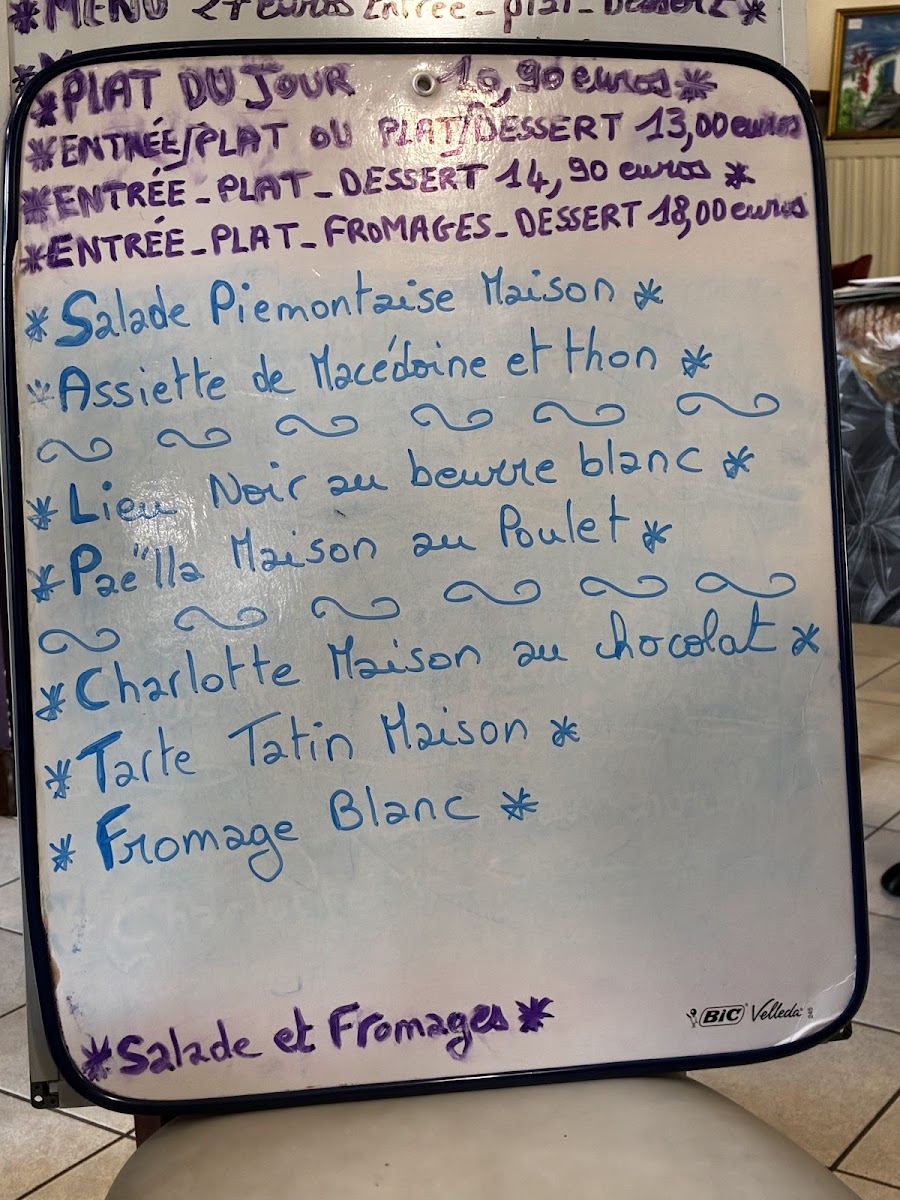 *MENU 27 euros Entrée_plat_Dessert*
*PLAT DU JOUR 10,90 euros*
*ENTRÉE/PLAT OU PLAT/DESSERT 13,00 euros
*ENTRÉE_PLAT_DESSERT 14,90 euros *
*ENTRÉE_PLAT_FROMAGES_DESSERT 18,00 euros
*Salade Piemontaise Maison *
*Assiette de Macédoine et thon *
*Lieu Noir au beurre blanc *
*Paë"lla Maison au Poulet *
*Charlotte Maison au chocolat *
*Tarte Tatin Maison *
* Fromage Blanc *
BIC Velleda
*Salade et Fromages*